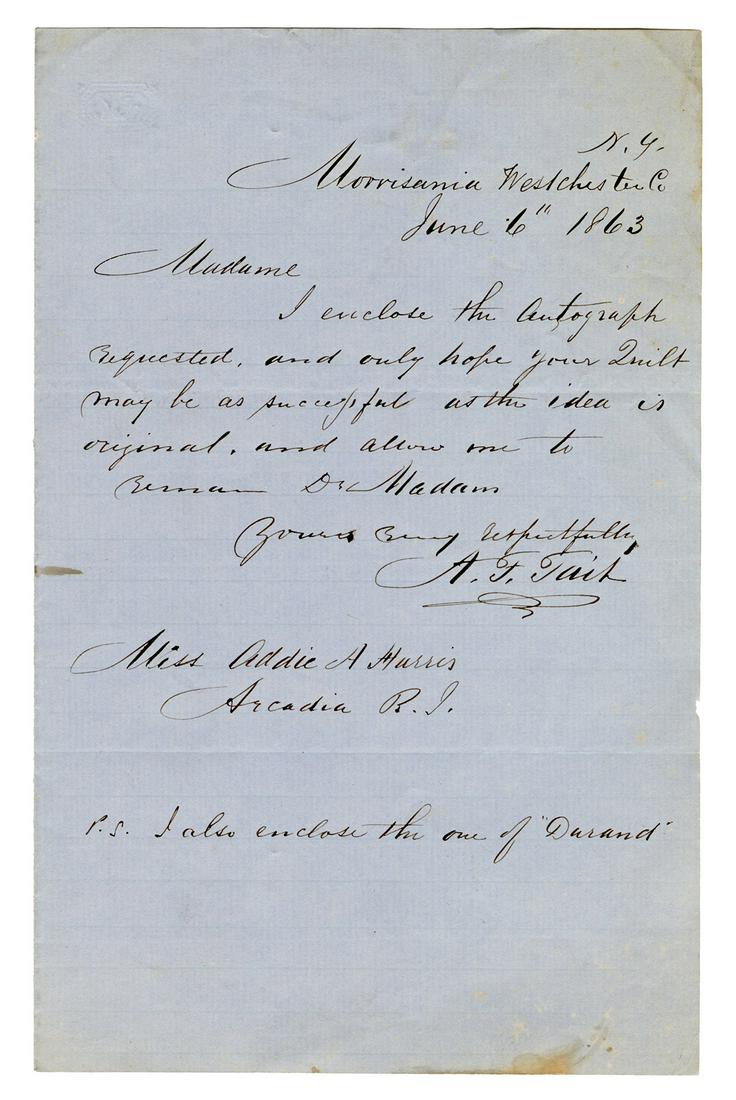 N. Y.
Morrisania Westchester Co
June 6" 1863
Madame
I enclose the Autograph
requested, and only hope your Quilt
may be as successful as the idea is
original, and allow me to
remain Dr Madam
Yours very respectfully,
A. F. Tait
Miss Addie A Harris
Arcadia R. I.
P.S. I also enclose the one of "Durand"